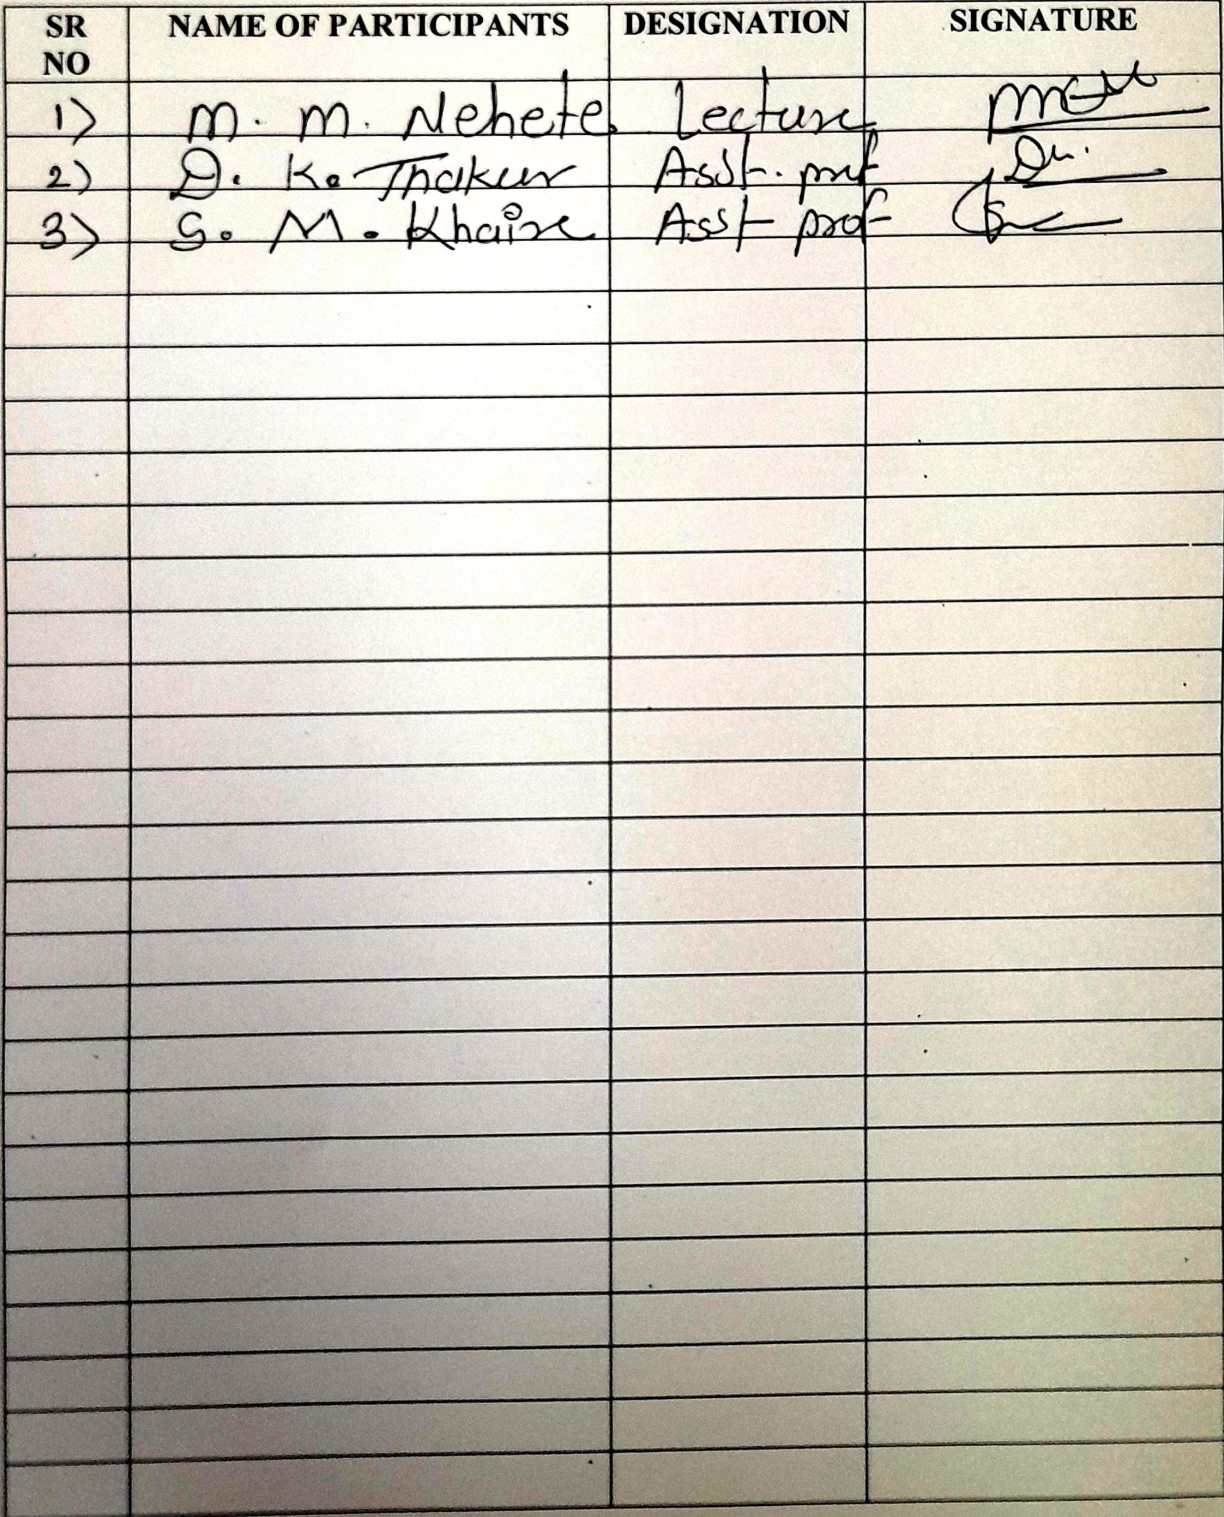 SR NO NAME OF PARTICIPANTS DESIGNATION SIGNATURE
1) M. M. Nehete Lecture
2) D. K. Thakur Asst. prof
3) S. M. Khaire Asst prof